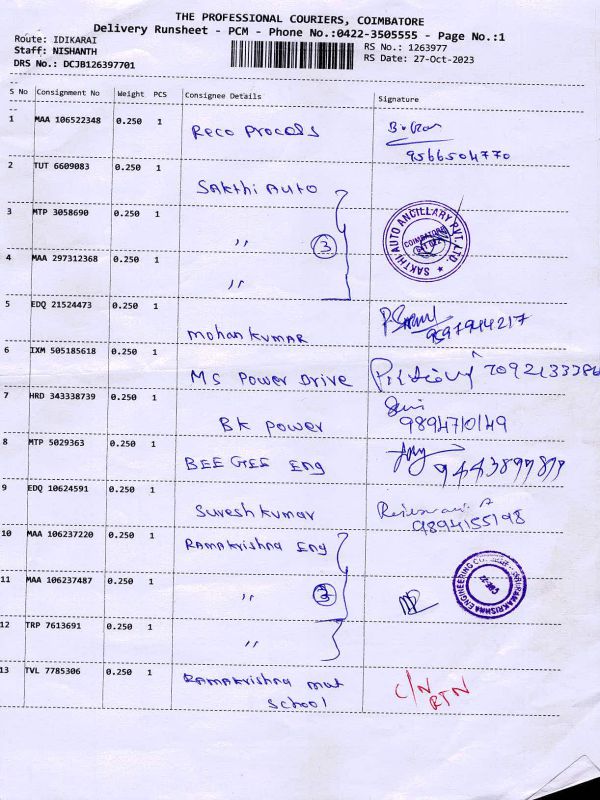 THE PROFESSIONAL COURIERS, COIMBATORE
Delivery Runsheet - PCM - Phone No.:0422-3505555 - Page No.:1
Route: IDIKARAI RS No.: 1263977
Staff: NISHANTH RS Date: 27-Oct-2023
DRS No.: DCJB126397701
S No Consignment No Weight PCS Consignee Details Signature
1 MAA 106522348 0.250 1 Reco Process
9566504770
2 TUT 6609083 0.250 1 Sakthi Auto
3 MTP 3058690 0.250 1 ,, 3 SAKTHI AUTO ANCILLARY PVT. LTD. COIMBATORE
4 MAA 297312368 0.250 1 ,,
5 EDQ 21524473 0.250 1 mohan kumar
6 IXM 505185618 0.250 1 MS Power Drive
7 HRD 343338739 0.250 1 BK power 9894710149
8 MTP 5029363 0.250 1 BEE GEE Eng 9443899899
9 EDQ 10624591 0.250 1 Suresh kumar 9894155198
10 MAA 106237220 0.250 1 Ramakrishna Eng
11 MAA 106237487 0.250 1 ,,
12 TRP 7613691 0.250 1 ,,
13 TVL 7785306 0.250 1 Ramakrishna mat school C/N RTN